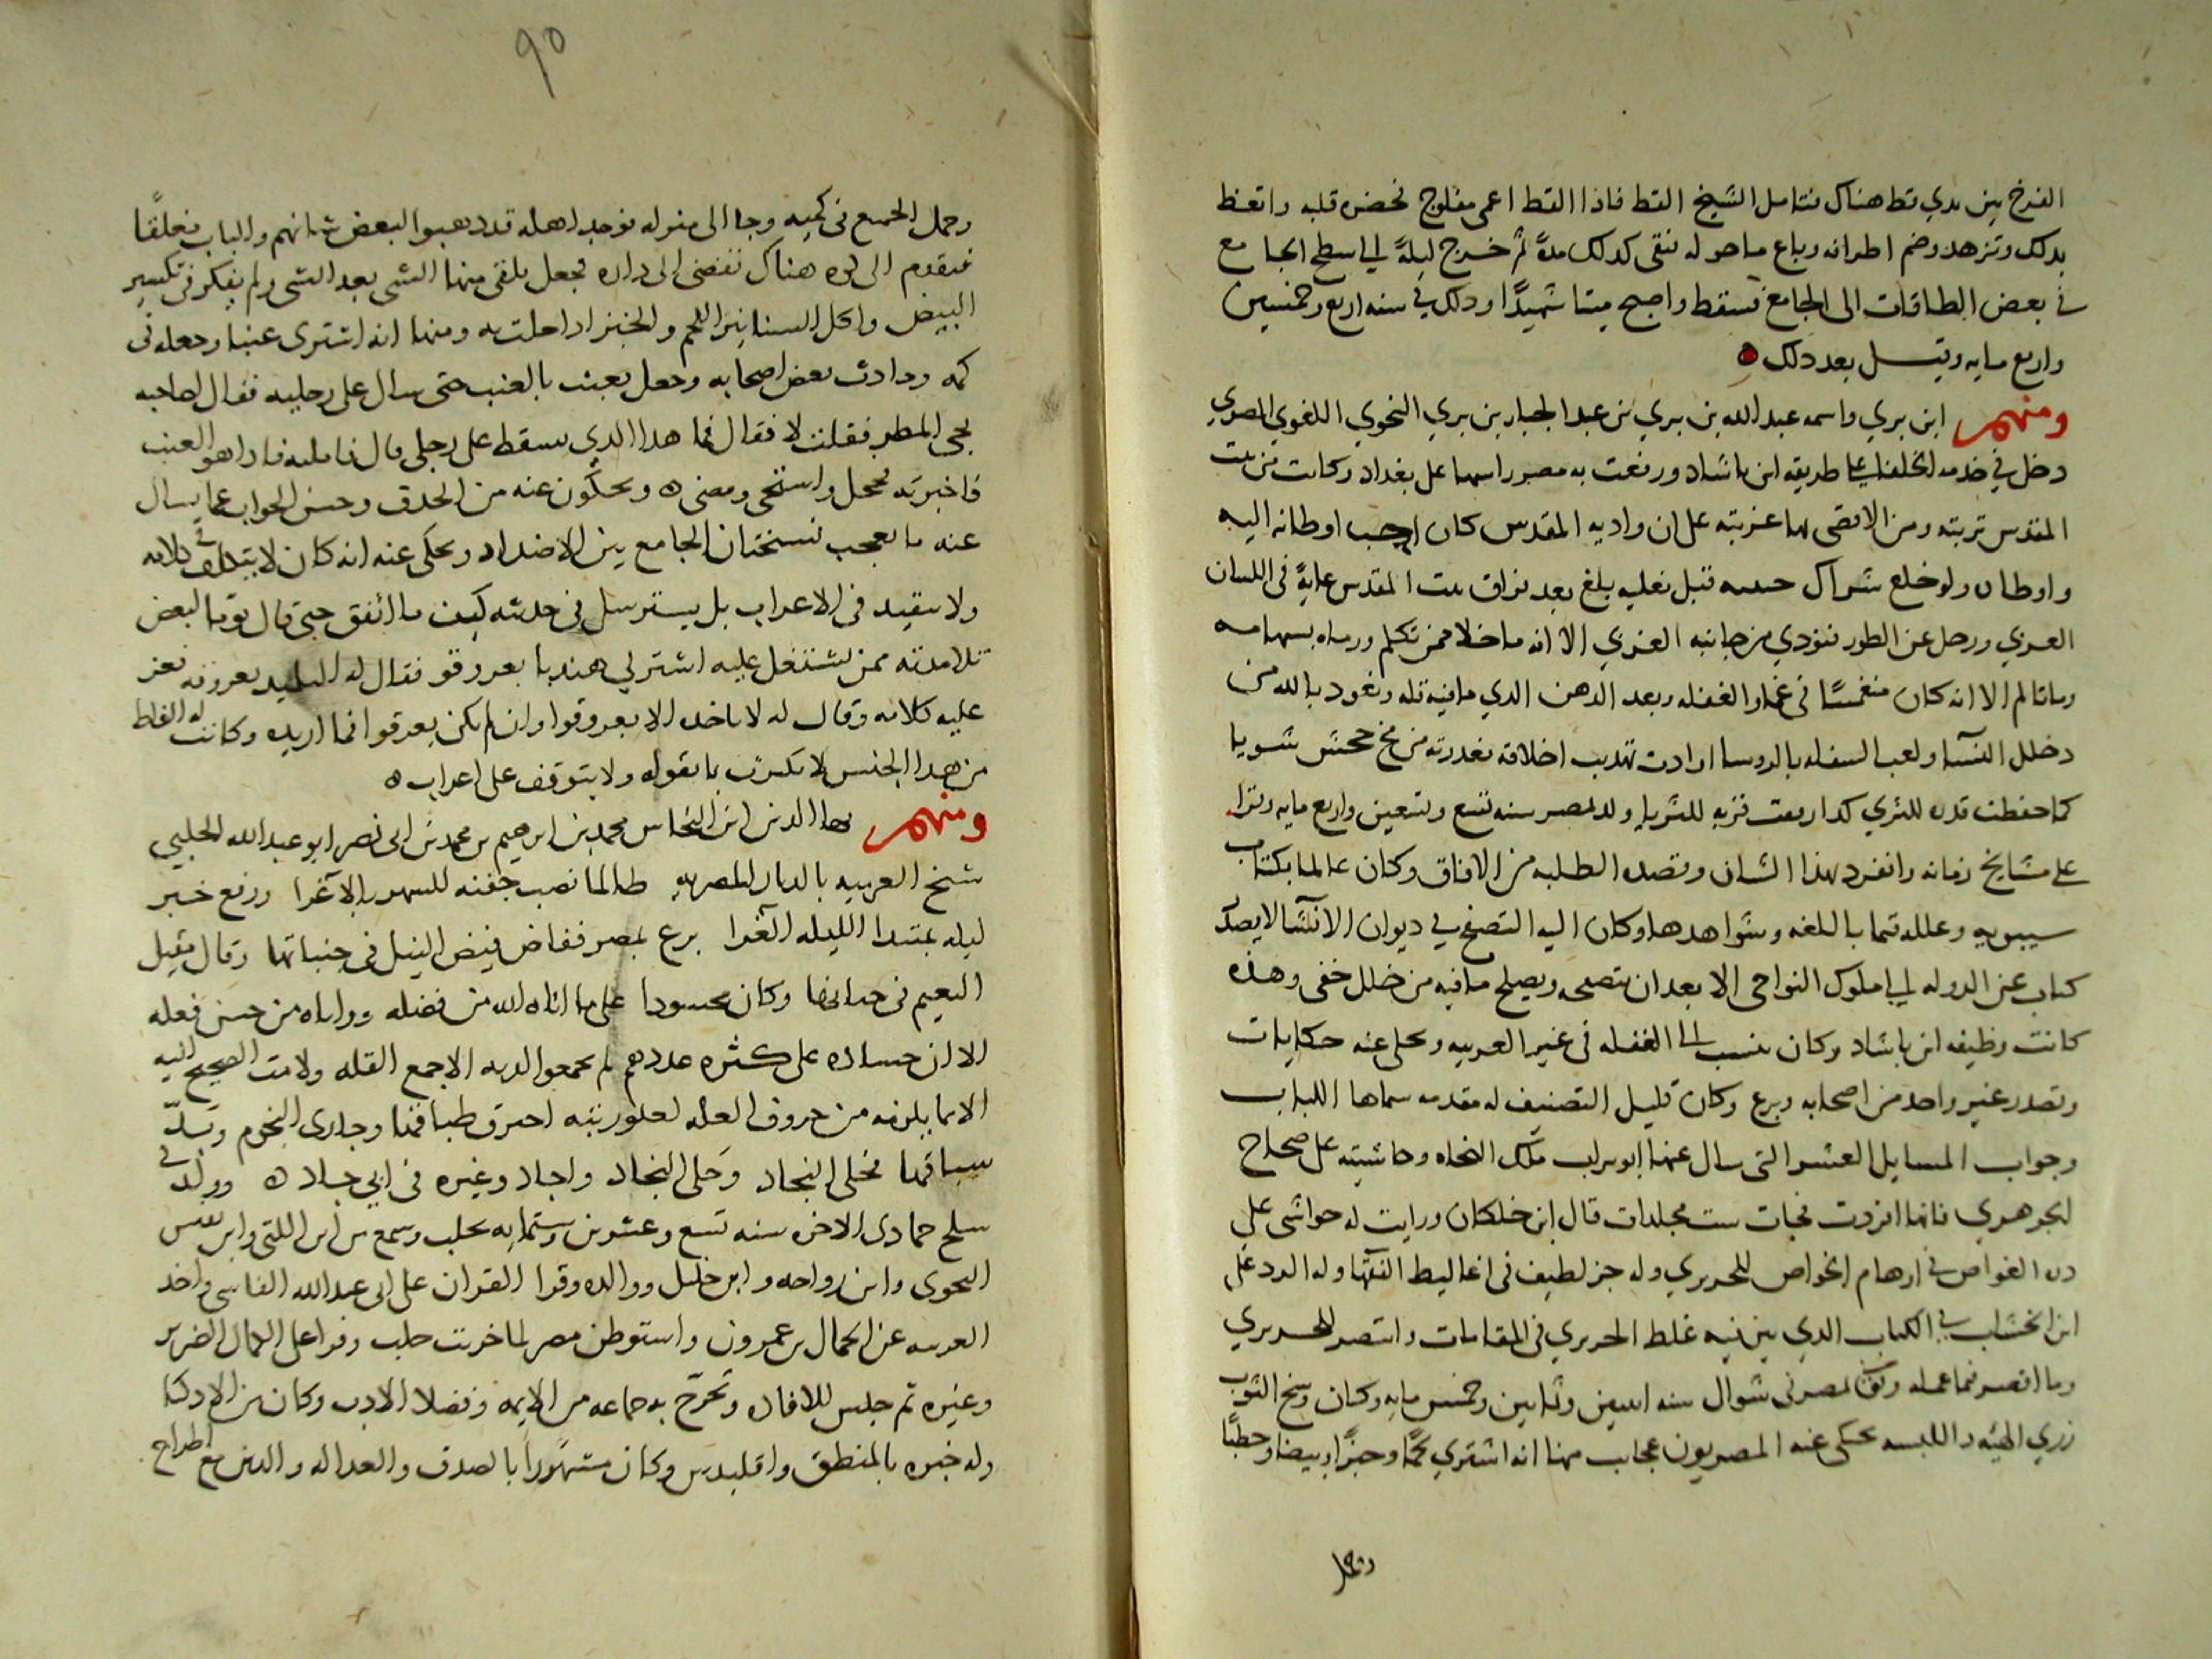 الفرخ بين يدي قط هناك فتامل الشيخ القط فاذا القط اعمى مفلوج فحضره قلبه واتعظ
بذلك وتزهد وضم اطرافه وباع ما حوله فبقى كذلك مدة ثم خرج ليلة الى سطح الجامع
في بعض الطاقات الى الجامع فسقط واصبح ميتا شهيدا وذلك في سنه اربع وخمسين
واربع مايه وقيل بعد ذلك ه
ومنهم ابن بري واسمه عبد الله بن بري بن عبد الجبار بن بري النحوي اللغوي المصري
دخل في خدمه الخلفا على طريقه ابن باشاد ورفعت به مصر راسها على بغداد وكانت من بيت
المقدس تربته ومن الاقصى لها غربته على ان واديه المقدس كان احب اوطانه اليه
واوطان ولو خلع شراك قبل نعليه بلغ بعد فراق بيت المقدس غاية في اللسان
العربي ورحل عن الطور فنودي من جانبه الغربي الا انه ما خلا ممن تكلم ورماه بسهامه
وما تالم الا انه كان منغمسا في غمار الغفله وبعد الذهن الذي ما فيه قله ونعوذ بالله من
دخلل النسا ولعب السفله بالروسا ارادت تهذيب اخلاقه فغدرته من مخ جحش شويا
كما حفظت قدره للثري كدا ربعت قربه للثريا ولد بمصر سنه تسع وتسعين واربع مايه وقرا
على مشايخ زمانه وانفرد بهذا الشان وقصده الطلبه من الافاق وكان عالما بكتاب
سيبويه وعلله قيما باللغه وشواهدها وكان اليه التصفح في ديوان الانشا لا يصدر
كتاب عن الدوله الى ملوك النواحي الا بعد ان يتصفحه ويصلح ما فيه من خلل خفى وهذه
كانت وظيفه ابن باشاد وكان ينسب الى الغفله في غير العربيه ويحكى عنه حكايات
وتصدر غير واحد من اصحابه وبرع وكان قليل التصنيف له مقدمه سماها اللباب
وجواب المسايل العشر التي سال عنها ابو نزار ملك النحاه وحاشيته على صحاح
الجوهري فانها افردت فجات ست مجلدات قال ابن خلكان ورايت له حواشي على
دره الغواص في اوهام الخواص للحريري وله جز لطيف في اغاليط الفقها وله الرد على
ابن الخشاب في الكتاب الذي بين فيه غلط الحريري في المقامات وانتصر للحريري
وما اقصر فيما عمله وتوفي بمصر في شوال سنه اثنين وثمانين وخمس مايه وكان وسخ الثوب
زري الهيئه واللبسه يحكى عنه المصريون عجايب منها انه اشترى لحما وخبزا وبيضا وحطبا
وحمل
٩٥
وحمل الجميع في كميه وجا الى منزله فوجد اهله قد ذهبوا لبعض شانهم والباب مغلقا
فتقدم الى كوه هناك تفضي الى داره فجعل يلقي منها الشي بعد الشي ولم يفكر في تكسير
البيض واكل السنانير اللحم والخبز اذا خلت به ومنها انه اشترى عنبا وجعله في
كمه وحادث بعض اصحابه وجعل يعبث بالعنب حتى سال على رجليه فقال لصاحبه
يجي المطر فقلت لا فقال فما هذا الذي يسقط على رجلي قال فتاملته فاذا هو العنب
فاخبرته فخجل واستحى ومضى ه ويحكون عنه من الحذق وحسن الجواب عما يسال
عنه ما يعجب فسبحان الجامع بين الاضداد ويحكى عنه انه كان لا يتكلف في كلامه
ولا يتقيد في الاعراب بل يسترسل في حديثه كيف ما اتفق حتى قال يوما لبعض
تلامذته ممن يشتغل عليه اشتر لي هندبا بعروقو فقال له التلميد بعروقه فعز
عليه كلامه وقال له لا تاخذه الا بعروقوا وان لم يكن بعروقوا فما اريده وكانت له الفاظ
من هذا الجنس لا يكترث بما يقوله ولا يتوقف على اعراب ه
ومنهم بها الدين ابن النحاس محمد بن ابرهيم بن محمد بن ابي نصر ابو عبد الله الحلبي
شيخ العربيه بالديار المصريه طالما نصب جفنه للسهر بالاغرا ورفع خبر
ليله بمبتدا الليله الغرا برع بمصر ففاض فيض النيل في جنباتها وقال مقيل
النعيم في جناتها وكان محسودا على ما اتاه الله من فضله وواتاه من حسن فعله
الا ان حساده على كثره عددهم لم يجمعوا لديه الا جمع القله ولا مت الصحيح اليه
الا بما يلزمه من حروف العله لعلو رتبه احترق طباقها وجارى النجوم وبد
سباقها فحلى النجاد وحلى النجاد واجاد وغيره في ابي جاد ه وولد في
سلخ جمادى الاخره سنه تسع وعشرين وستمايه بحلب وسمع من ابن اللتي وابن يعيش
النحوى وابن رواحه وابن خليل ووالده وقرا القران على ابي عبد الله الفاسي واخذ
العربيه عن الجمال بن عمرون واستوطن مصر لما خربت حلب وقرا على الكمال الضرير
وغيره ثم جلس للافاده وتخرج به جماعه من الايمه وفضلا الادب وكان من الاذكيا
وله خبره بالمنطق واقليدس وكان مشهورا بالصدق والعداله والدين مع اطراح